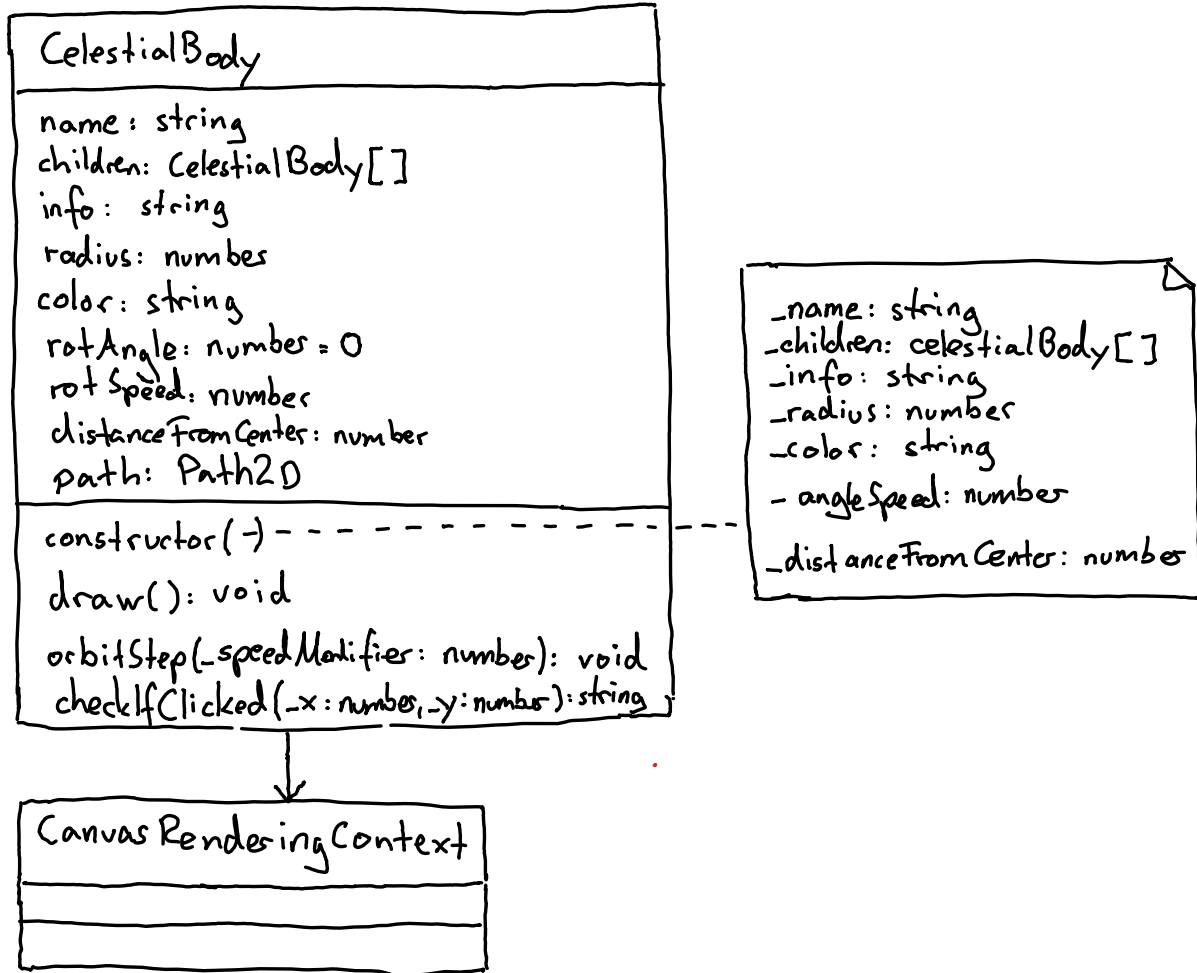 CelestialBody
name: string
children: CelestialBody[]
info: string
radius: number
color: string
rotAngle: number = 0
rotSpeed: number
distanceFromCenter: number
path: Path2D
constructor(-)
draw(): void
orbitStep(_speedModifier: number): void
checkIfClicked(_x: number, _y: number): string
_name: string
_children: celestialBody[]
_info: string
_radius: number
_color: string
_angleSpeed: number
_distanceFromCenter: number
CanvasRenderingContext